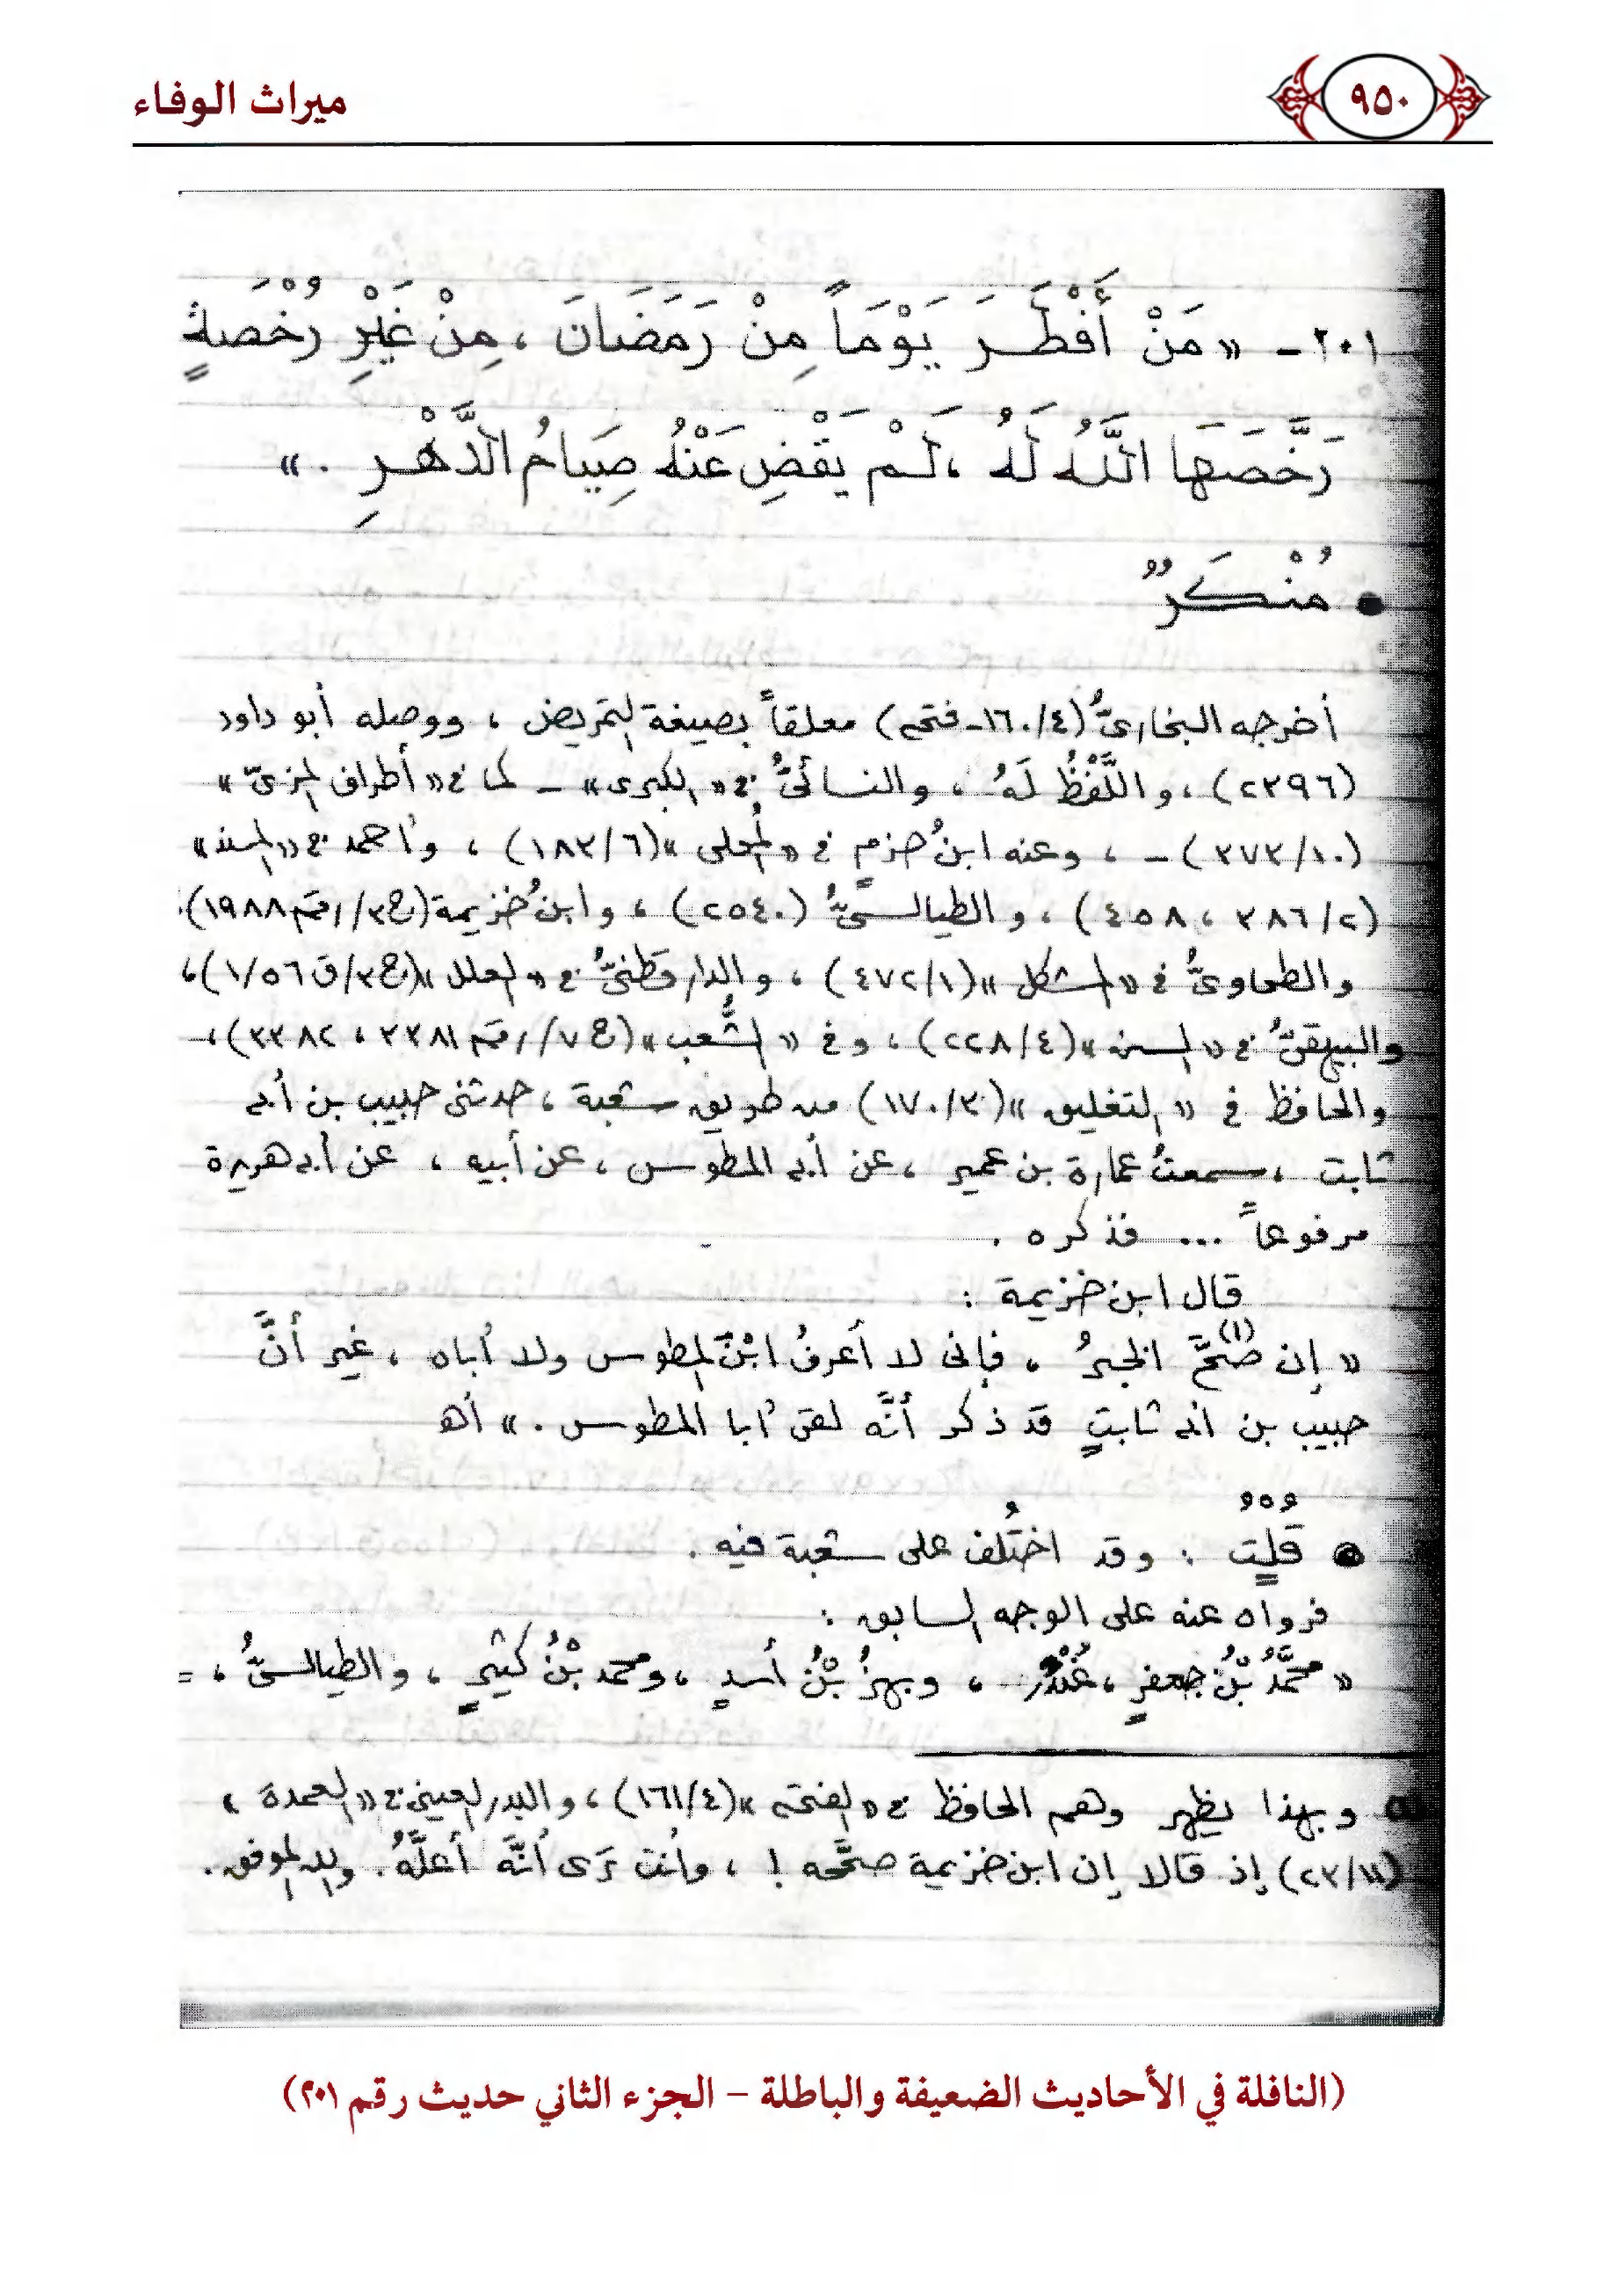 ٩٥٠
ميراث الوفاء
٢٠١ - « مَنْ أَفْطَرَ يَوْمَاً مِنْ رَمَضَانَ ، مِنْ غَيْرِ رُخْصَةٍ
رَخَّصَهَا اللَّهُ لَهُ ، لَمْ يَقْضِ عَنْهُ صِيَامُ الدَّهْرِ . »
● مُنْكَرٌ
أخرجه البخاريُّ (٤/١٦٠-فتح) معلقاً بصيغة التمريض ، ووصله أبو داود
(٢٣٩٦) ، واللَّفْظُ لَهُ ، والنسائيُّ في « الكبرى » - كما في « أطراف المزيّ »
(١٠/٣٧٣) - ، وعنه ابنُ حزمٍ في « المُحلى » (٦/١٨٣) ، وأحمد في « المسند »
(٢/٣٨٦ ، ٤٥٨) ، والطيالسيُّ (٢٥٤٠) ، وابنُ خزيمة (ج٣/رقم ١٩٨٨) ،
والطحاويُّ في « المشكل » (١/٤٧٢) ، والدارقطنيُّ في « العلل » (ج٣/ق٥٦/١) ،
والبيهقيُّ في « السنن » (٤/٢٢٨) ، وفي « الشُّعب » (ج٧/رقم ٣٣٨١ ، ٣٣٨٢) ،
والحافظ في « التغليق » (٣/١٧٠) من طريق شعبة ، حدثني حبيب بن أبي
ثابت ، سمعتُ عمارة بن عمير ، عن أبي المطوس ، عن أبيه ، عن أبي هريرة
مرفوعاً ... فذكره .
قال ابن خزيمة :
« إن صَحَّ (١) الخبرُ ، فإني لا أعرفُ ابْنَ المطوس ولا أباه ، غير أنَّ
حبيب بن أبي ثابتٍ قد ذكر أنَّه لقى أبا المطوس . » أهـ
● قُلْتُ : وقد اختُلف على شعبة فيه .
فرواه عنه على الوجه السابق :
« محمَّدُ بْنُ جعفرٍ ، غُنْدُر ، وبهزُ بْنُ أسدٍ ، ومحمد بْنُ كثيرٍ ، والطيالسيُّ ، =
وبهذا يظهر وهم الحافظ في « الفتح » (٤/١٦١) ، والبدر العيني في « العمدة »
(١١/٢٣) إذ قالا إن ابن خزيمة صحَّحه ! ، وأنت ترى أنَّه أعلَّهُ . والله الموفق .
(النافلة في الأحاديث الضعيفة والباطلة – الجزء الثاني حديث رقم ٢٠١)